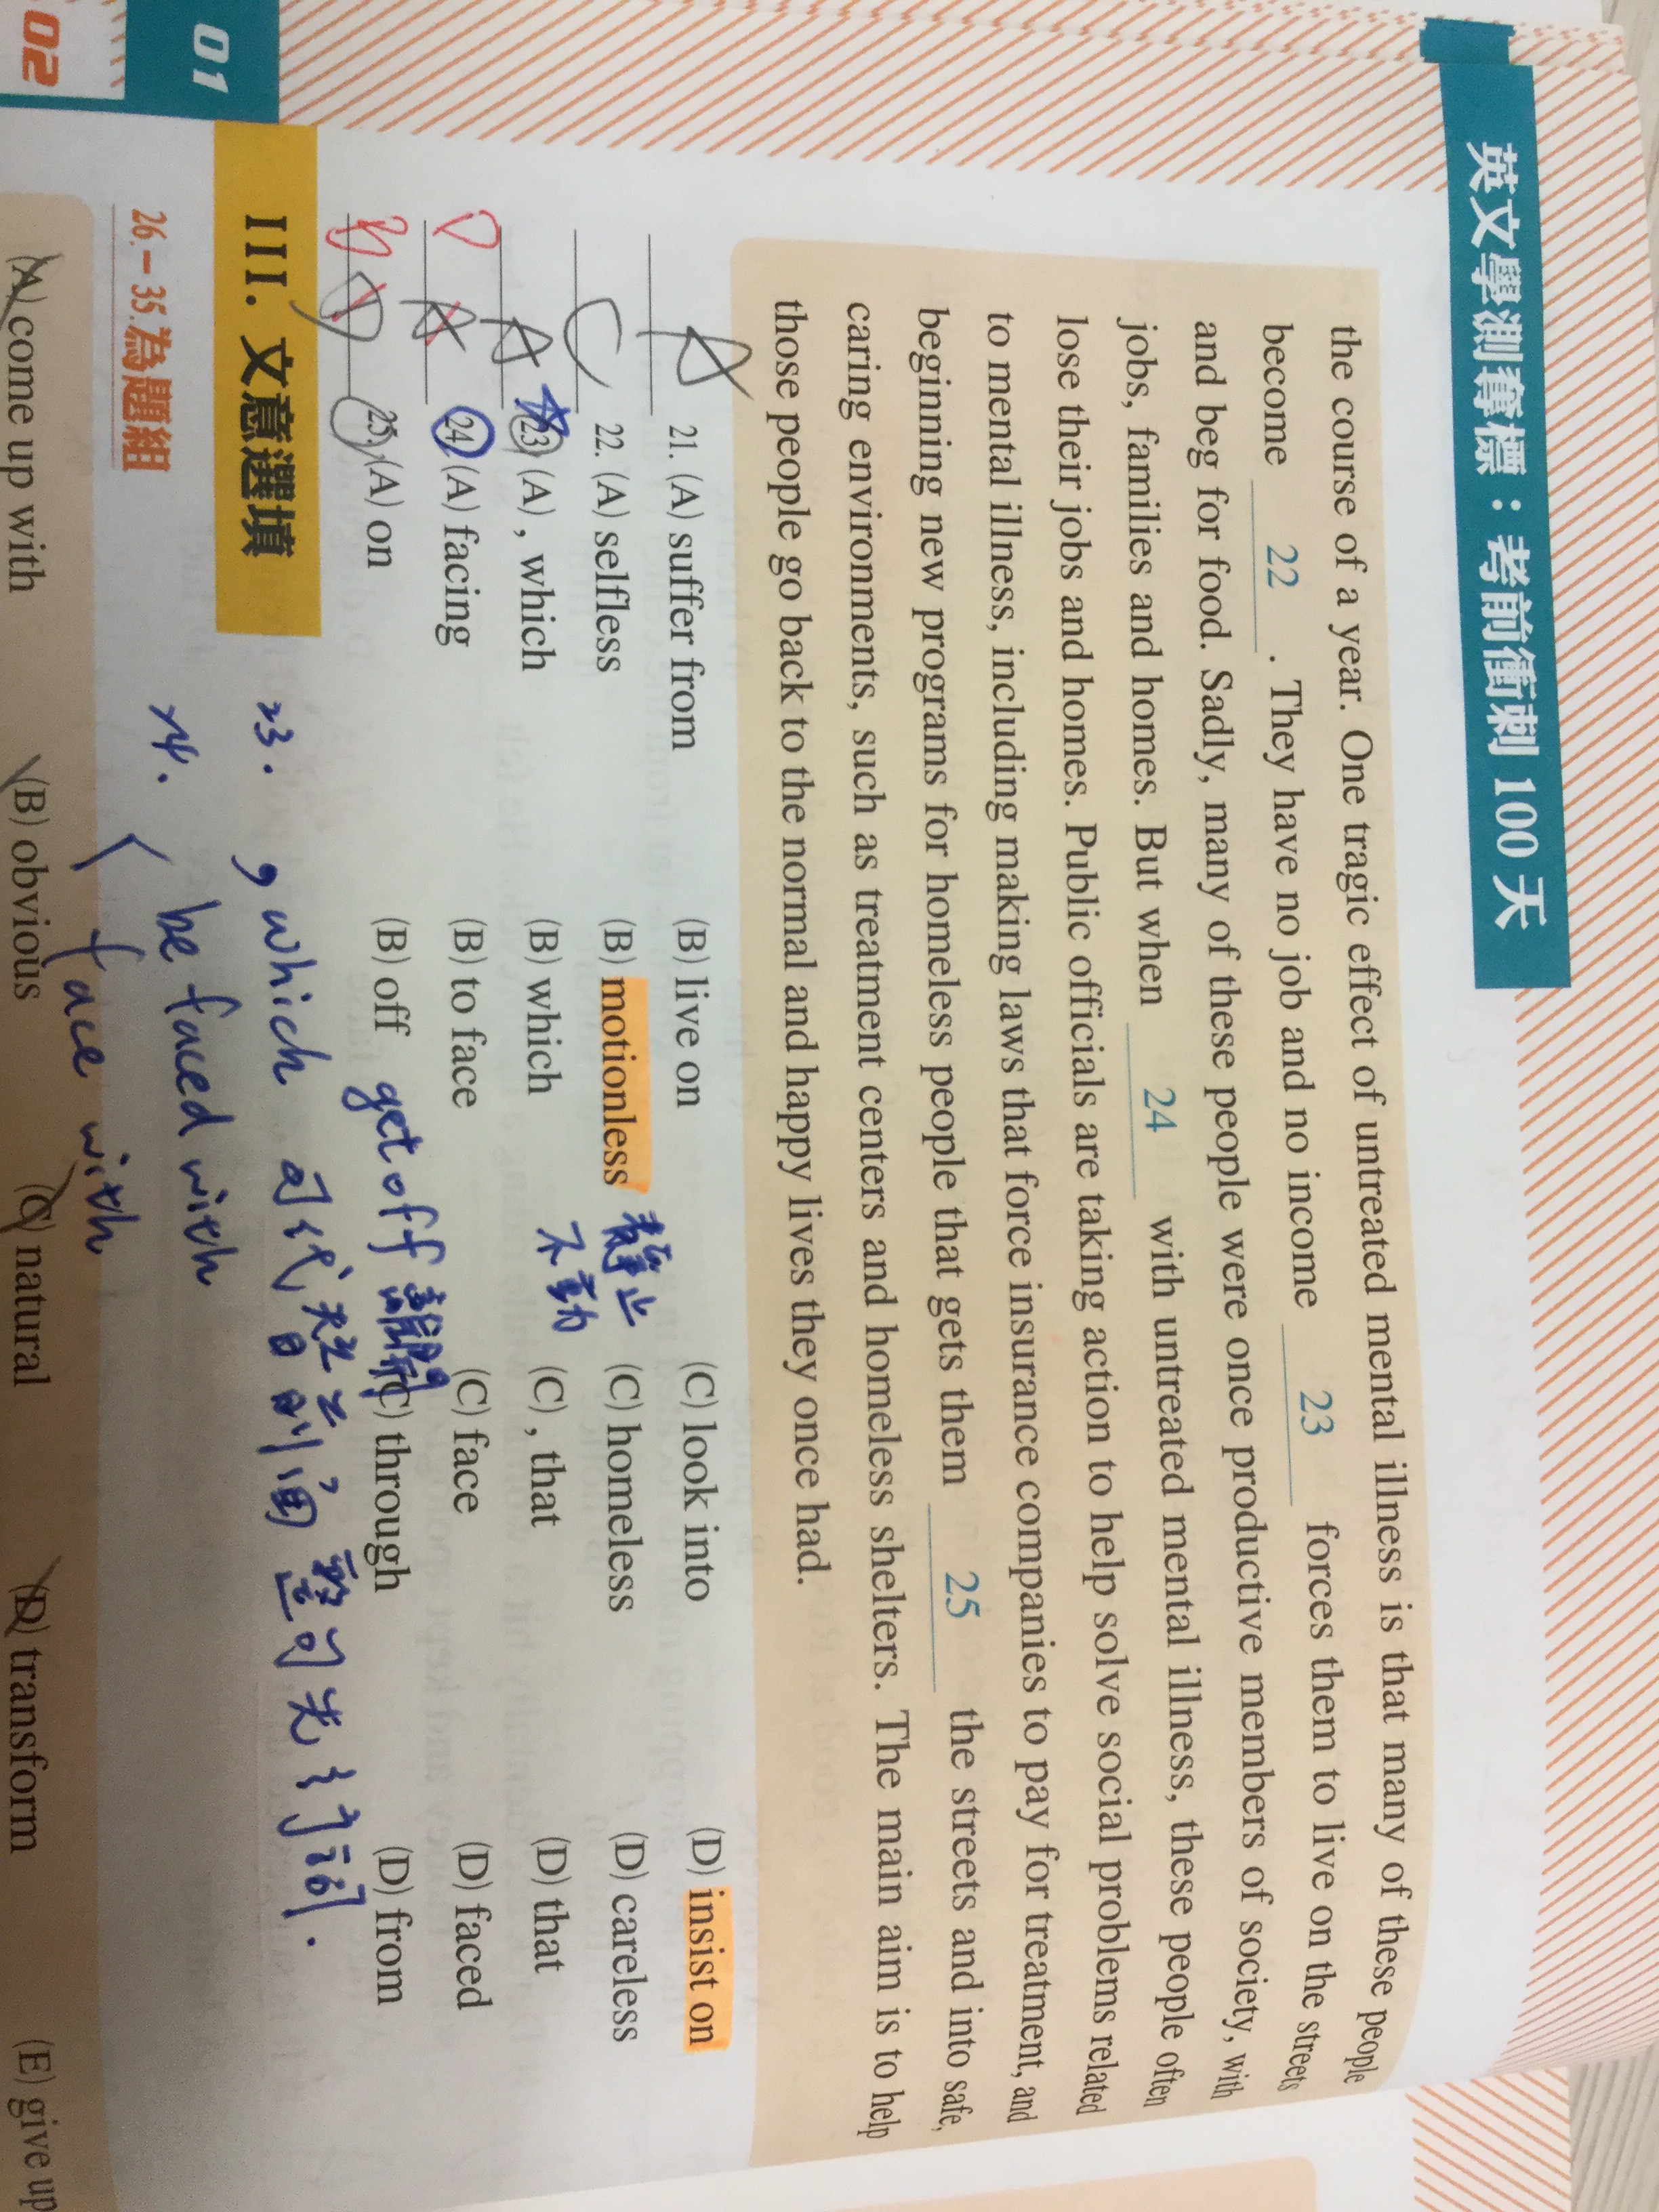 英文學測奪標：考前衝刺 100 天
the course of a year. One tragic effect of untreated mental illness is that many of these people
become 22 . They have no job and no income 23 forces them to live on the streets
and beg for food. Sadly, many of these people were once productive members of society, with
jobs, families and homes. But when 24 with untreated mental illness, these people often
lose their jobs and homes. Public officials are taking action to help solve social problems related
to mental illness, including making laws that force insurance companies to pay for treatment, and
beginning new programs for homeless people that gets them 25 the streets and into safe,
caring environments, such as treatment centers and homeless shelters. The main aim is to help
those people go back to the normal and happy lives they once had.
A 21. (A) suffer from (B) live on (C) look into (D) insist on
C 22. (A) selfless (B) motionless 靜止不動 (C) homeless (D) careless
A 23. (A) , which (B) which (C) , that (D) that
D A 24. (A) facing (B) to face (C) face (D) faced
B D 25. (A) on (B) off get off 離開 (C) through (D) from
23. , which 可代替之前整句
24. be faced with
face with
01
III. 文意選填
26－35.為題組
02
(A) come up with (B) obvious (C) natural (D) transform (E) give up